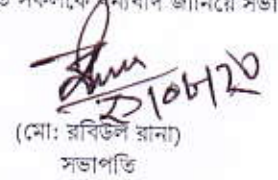 সকলকে ধন্যবাদ জানিয়ে সভা
২১০৮২৩
(মো: রবিউল রানা)
সভাপতি